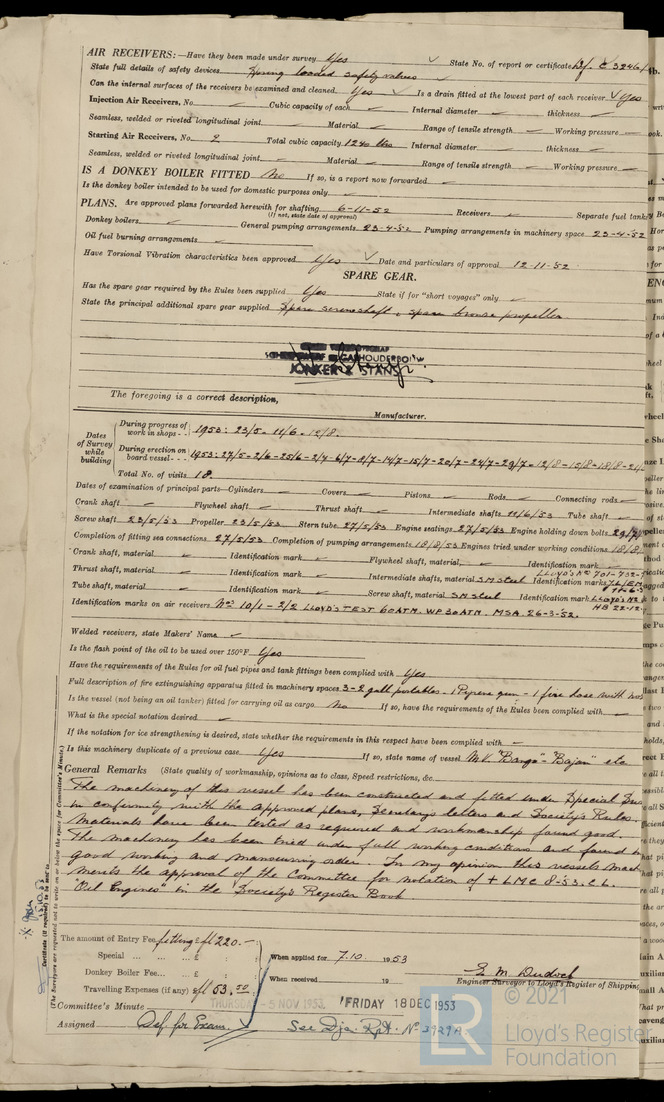 AIR RECEIVERS:—Have they been made under survey Yes ✓ State No. of report or certificate
State full details of safety devices Spring loaded safety valves
Can the internal surfaces of the receivers be examined and cleaned. Yes ✓ Is a drain fitted at the lowest part of each receiver ✓ Yes
Injection Air Receivers, No. Cubic capacity of each Internal diameter thickness
Seamless, welded or riveted longitudinal joint Material Range of tensile strength Working pressure
Starting Air Receivers, No. 2 Total cubic capacity 1240 Internal diameter thickness
Seamless, welded or riveted longitudinal joint Material Range of tensile strength Working pressure
IS A DONKEY BOILER FITTED No If so, is a report now forwarded
Is the donkey boiler intended to be used for domestic purposes only
PLANS. Are approved plans forwarded herewith for shafting 6-11-52 Receivers Separate fuel tank
(If not, state date of approval)
Donkey boilers General pumping arrangements 23-4-52 Pumping arrangements in machinery space 23-4-52
Oil fuel burning arrangements
Have Torsional Vibration characteristics been approved Yes ✓ Date and particulars of approval 12-11-52
SPARE GEAR.
Has the spare gear required by the Rules been supplied Yes State if for "short voyages" only
State the principal additional spare gear supplied Spare screwshaft, spare bronze propeller
JONKER & STANS
The foregoing is a correct description,
Manufacturer.
Dates of Survey while building
During progress of work in shops - - 1953: 23/5- 11/6 - 12/8.
During erection on board vessel - - 1953-27/5-2/6-25/6-2/7-6/7-8/7-14/7-15/7-20/7-24/7-29/7-12/8-15/8-18/8-21/
Total No. of visits 18.
Dates of examination of principal parts—Cylinders Covers Pistons Rods Connecting rods
Crank shaft Flywheel shaft Thrust shaft Intermediate shafts 11/6/53 Tube shaft
Screw shaft 23/5/53 Propeller 23/5/53 Stern tube 27/5/53 Engine seatings 27/5/53 Engine holding down bolts 29/7/
Completion of fitting sea connections 27/5/53 Completion of pumping arrangements 18/8/53 Engines tried under working conditions 18/8
Crank shaft, material Identification mark Flywheel shaft, material Identification mark
Thrust shaft, material Identification mark Intermediate shafts, material SM steel Identification marks LLOYD'S No 701-732-
Tube shaft, material Identification mark Screw shaft, material SM steel Identification mark LLOYD'S No
HB 22-12-
Identification marks on air receivers No 10/1 - 2/2 LLOYD'S TEST 60ATM. WP 30 ATM. MSA. 26-3-52.
Welded receivers, state Makers' Name
Is the flash point of the oil to be used over 150°F. Yes
Have the requirements of the Rules for oil fuel pipes and tank fittings been complied with Yes
Full description of fire extinguishing apparatus fitted in machinery spaces 3-2 gall portables - 1 Pyrene gun - 1 fire hose with
Is the vessel (not being an oil tanker) fitted for carrying oil as cargo No If so, have the requirements of the Rules been complied with
What is the special notation desired
If the notation for ice strengthening is desired, state whether the requirements in this respect have been complied with
Is this machinery duplicate of a previous case Yes If so, state name of vessel M.V. "Banga" - "Bajan" etc
General Remarks (State quality of workmanship, opinions as to class, Speed restrictions, &c.
The machinery of this vessel has been constructed and fitted under Special
in conformity with the approved plans, Secretary's letters and Society's Rules.
Materials have been tested as required and workmanship found good.
The machinery has been tried under full working conditions and found in
good working and manoeuvring order. In my opinion this vessels mach
merits the approval of the Committee for notation of + LMC 8-53. C.L.
"Oil Engines" in the Society's Register Book
Certificate (if required) to be sent to
(The Surveyors are requested not to write on or below the space for Committee's Minute.)
The amount of Entry Fee fitting £ fl 220.-
Special ... ... £
Donkey Boiler Fee... ... £
Travelling Expenses (if any) £ fl 53.50
When applied for 7.10. 1953
When received 19
Engineer Surveyor to Lloyd's Register of Shipping
Committee's Minute THURSDAY - 5 NOV 1953 FRIDAY 18 DEC 1953
Assigned Def. for Exam. See Dja Rpt. No 3929A
© 2021
LR
Lloyd's Register
Foundation